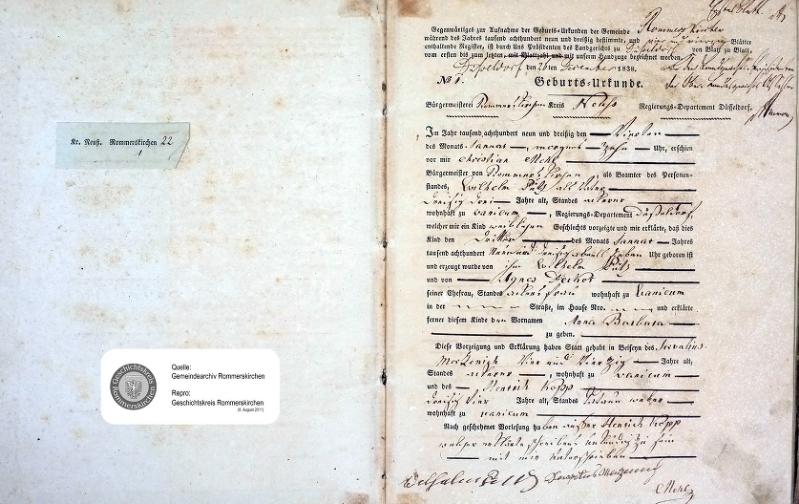 Kr. Neuß. Rommerskirchen 22
1
Geschichtskreis
Rommerskirchen
Quelle:
Gemeindearchiv Rommerskirchen
Repro:
Geschichtskreis Rommerskirchen
(6. August 2011)
Erstes Blatt
Gegenwärtiges zur Aufnahme der Geburts-Urkunden der Gemeinde Rommerskirchen
während des Jahres tausend achthundert neun und dreißig bestimmte, und Blätter
enthaltende Register, ist durch Uns Präsidenten des Landgerichts zu Düsseldorf von Blatt zu Blatt,
vom ersten bis zum letzten, mit und mit unserm Handzuge bezeichnet worden.
Düsseldorf den 26ten December 1838.
No 1. Geburts-Urkunde.
Bürgermeisterei Rommerskirchen Kreis Neuss Regierungs-Departement Düsseldorf.
Im Jahr tausend achthundert neun und dreißig den Vierten
des Monats Januar, morgens zehn Uhr, erschien
vor mir Christian Mehl
Bürgermeister von Rommerskirchen, als Beamter des Personen-
standes, Wilhelm Pütz alt
dreißig drei Jahre alt, Standes Ackerer
wohnhaft zu Vanicum, Regierungs-Departement Düsseldorf,
welcher mir ein Kind weiblichen Geschlechts vorzeigte und mir erklärte, daß dies
Kind den Dritten des Monats Januar Jahres
tausend achthundert neun und dreißig sieben Uhr geboren ist
und erzeugt wurde von ihm Wilhelm Pütz
und von Agnes
seiner Ehefrau, Standes Ackersfrau wohnhaft zu Vanicum
in der Straße, im Hause Nro. und erklärte
ferner diesem Kinde den Vornamen Anna Barbara
zu geben.
Diese Vorzeigung und Erklärung haben Statt gehabt in Beiseyn des Servatius
Meckenich Vier und Vierzig Jahre alt,
Standes Ackerer, wohnhaft zu Vanicum
und des Henrich Kopp
dreißig vier Jahre alt, Standes
wohnhaft zu Vanicum
Nach geschehener Vorlesung haben außer Henrich Kopp
welcher erklärte schreibens unkundig zu sein
mit mir unterschrieben
Wilhelm Pütz Servatius Meckenich
Mehl